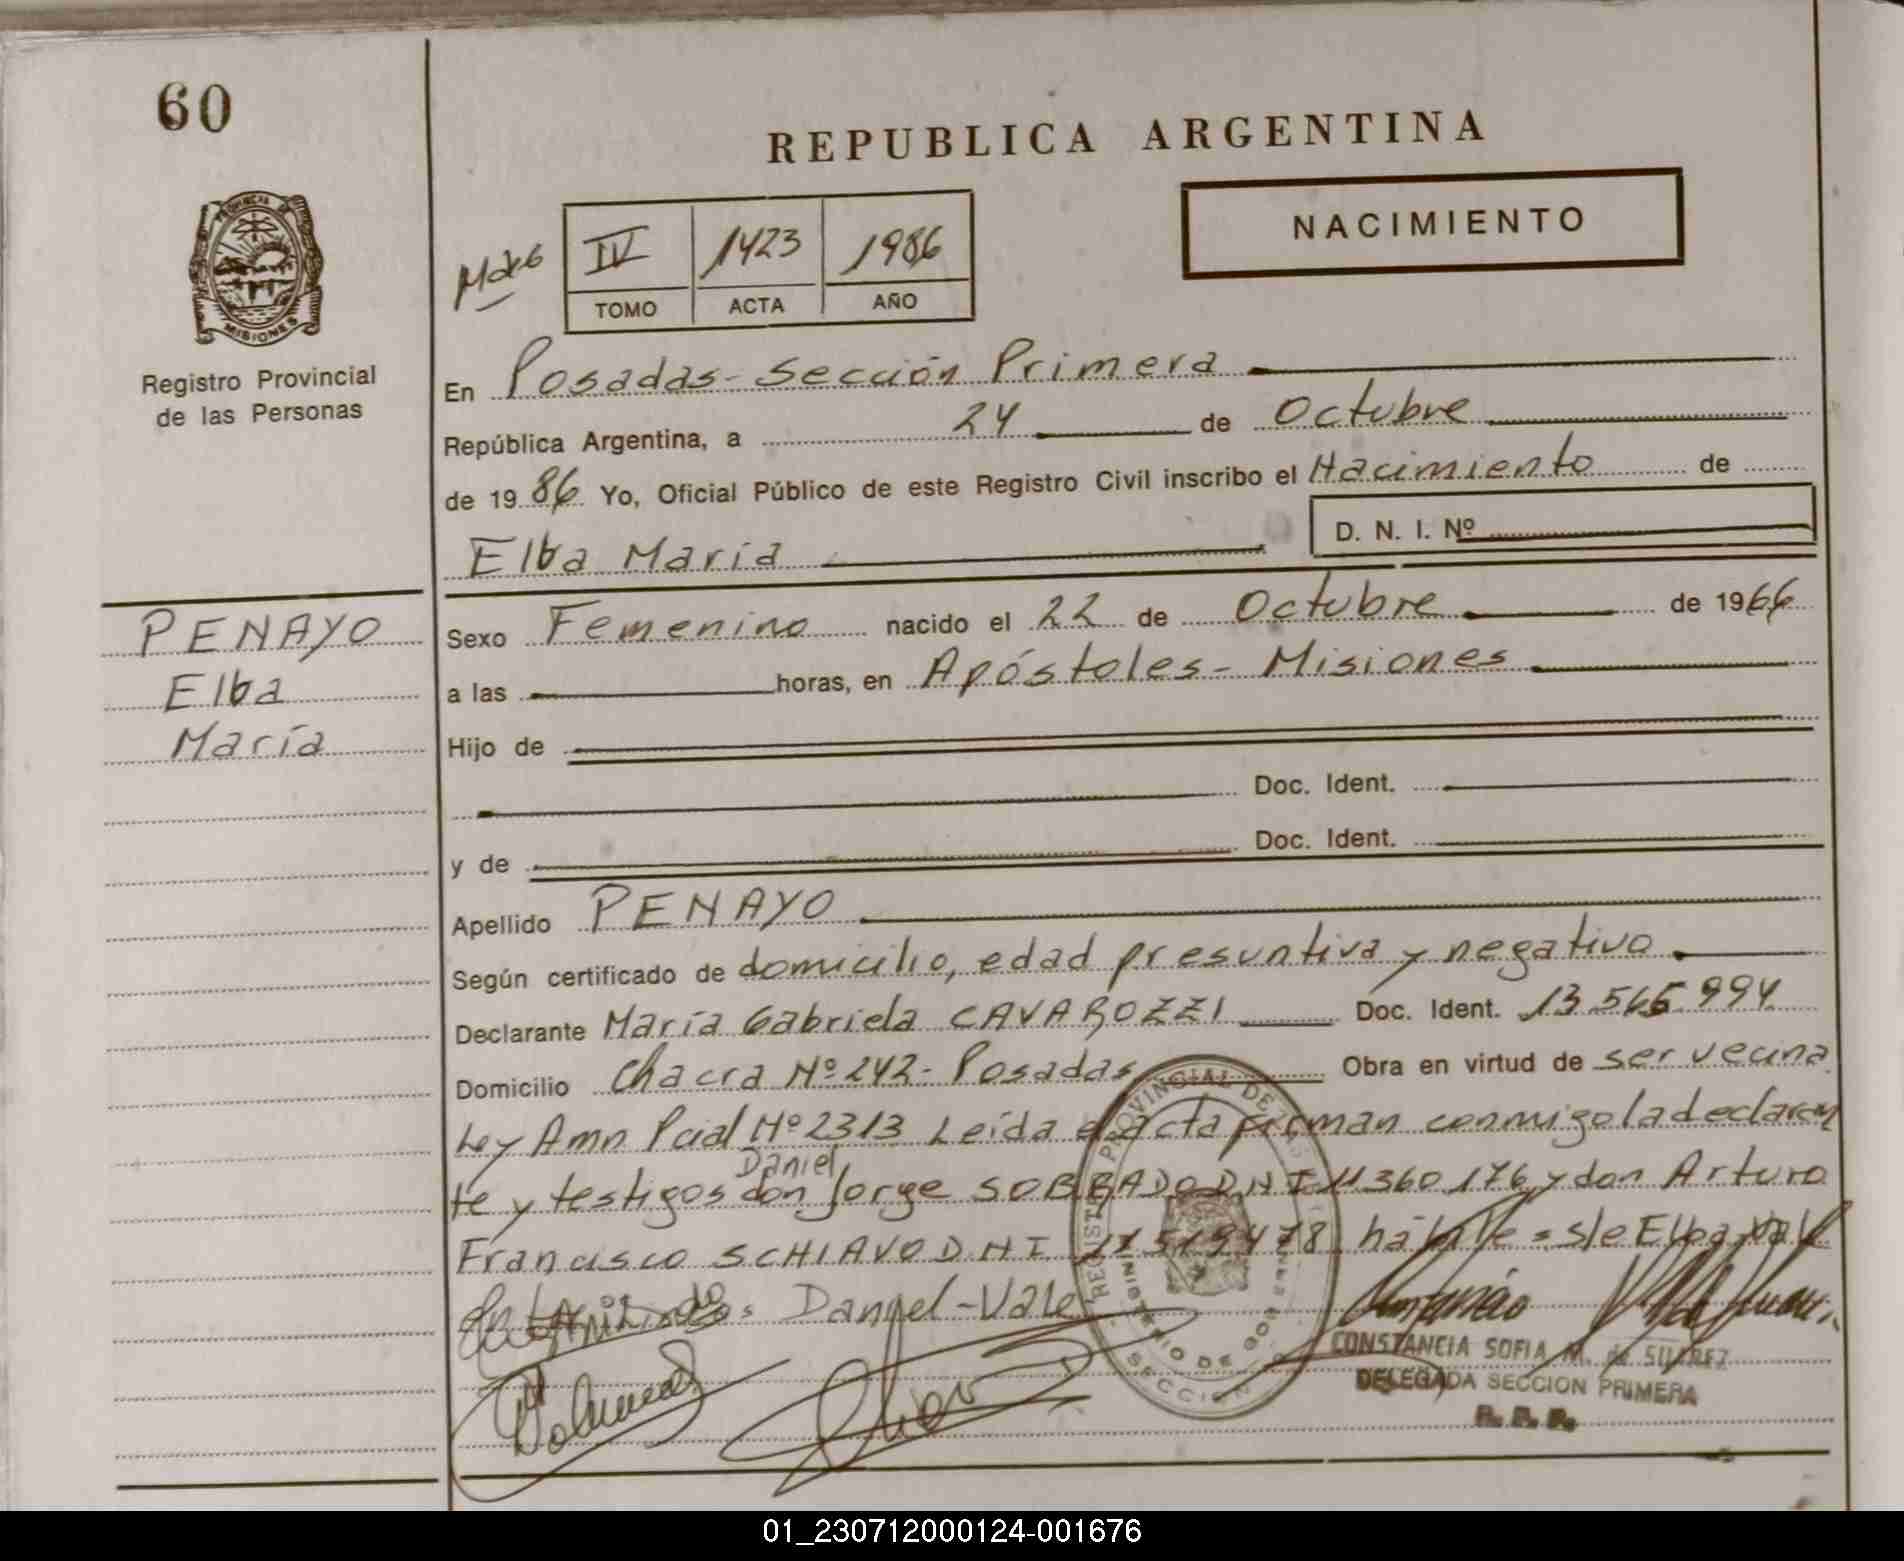 60
REPUBLICA ARGENTINA
PROVINCIA DE
MISIONES
Registro Provincial
de las Personas
IV 1423 1986
TOMO ACTA AÑO
NACIMIENTO
En Posadas - Sección Primera
República Argentina, a 24 de Octubre
de 1986 Yo, Oficial Público de este Registro Civil inscribo el Nacimiento de
Elba María D. N. I. Nº
PENAYO
Elba
María
Sexo Femenino nacido el 22 de Octubre de 1966
a las horas, en Apóstoles - Misiones
Hijo de
Doc. Ident.
y de Doc. Ident.
Apellido PENAYO
Según certificado de domicilio, edad presuntiva y negativo
Declarante María Gabriela CAVAROZZI Doc. Ident. 13.565.994
Domicilio Chacra Nº 242 - Posadas Obra en virtud de ser vecina
Ley Amn Pcial Nº 2313 Leída el acta firman conmigo la declaran
Daniel
te y testigos don Jorge SOBRADO DNI 11360176 y don Arturo
Francisco SCHIAVO DNI s/e Elba Vale
Daniel - Vale
REGISTRO PROVINCIAL DE
MINISTERIO DE
SECCION
CONSTANCIA SOFIA M. de SUAREZ
DELEGADA SECCION PRIMERA
R. P. P.
01_230712000124-001676